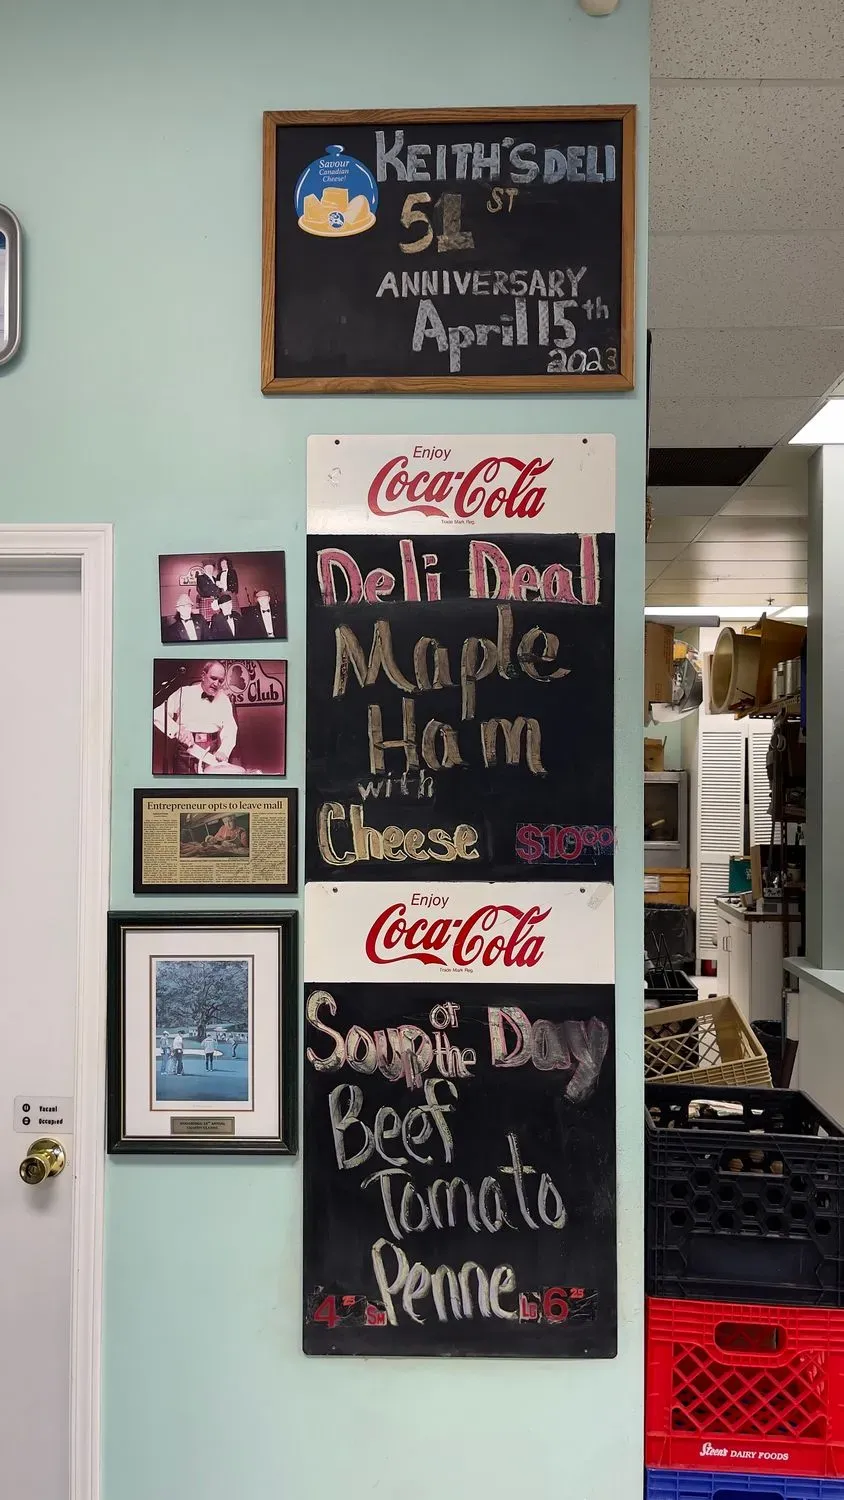 Savour
Canadian
Cheese!
KEITH'S DELI
51ST
ANNIVERSARY
April 15th
2023
Enjoy
Coca-Cola
Trade Mark Reg.
Deli Deal
Maple
Ham
with
Cheese $10.00
Enjoy
Coca-Cola
Trade Mark Reg.
Soup of the Day
Beef
Tomato
Penne
4.25 Sm
LG 6.25
s Club
Entrepreneur opts to leave mall
Vacant
Occupied
Steen's DAIRY FOODS